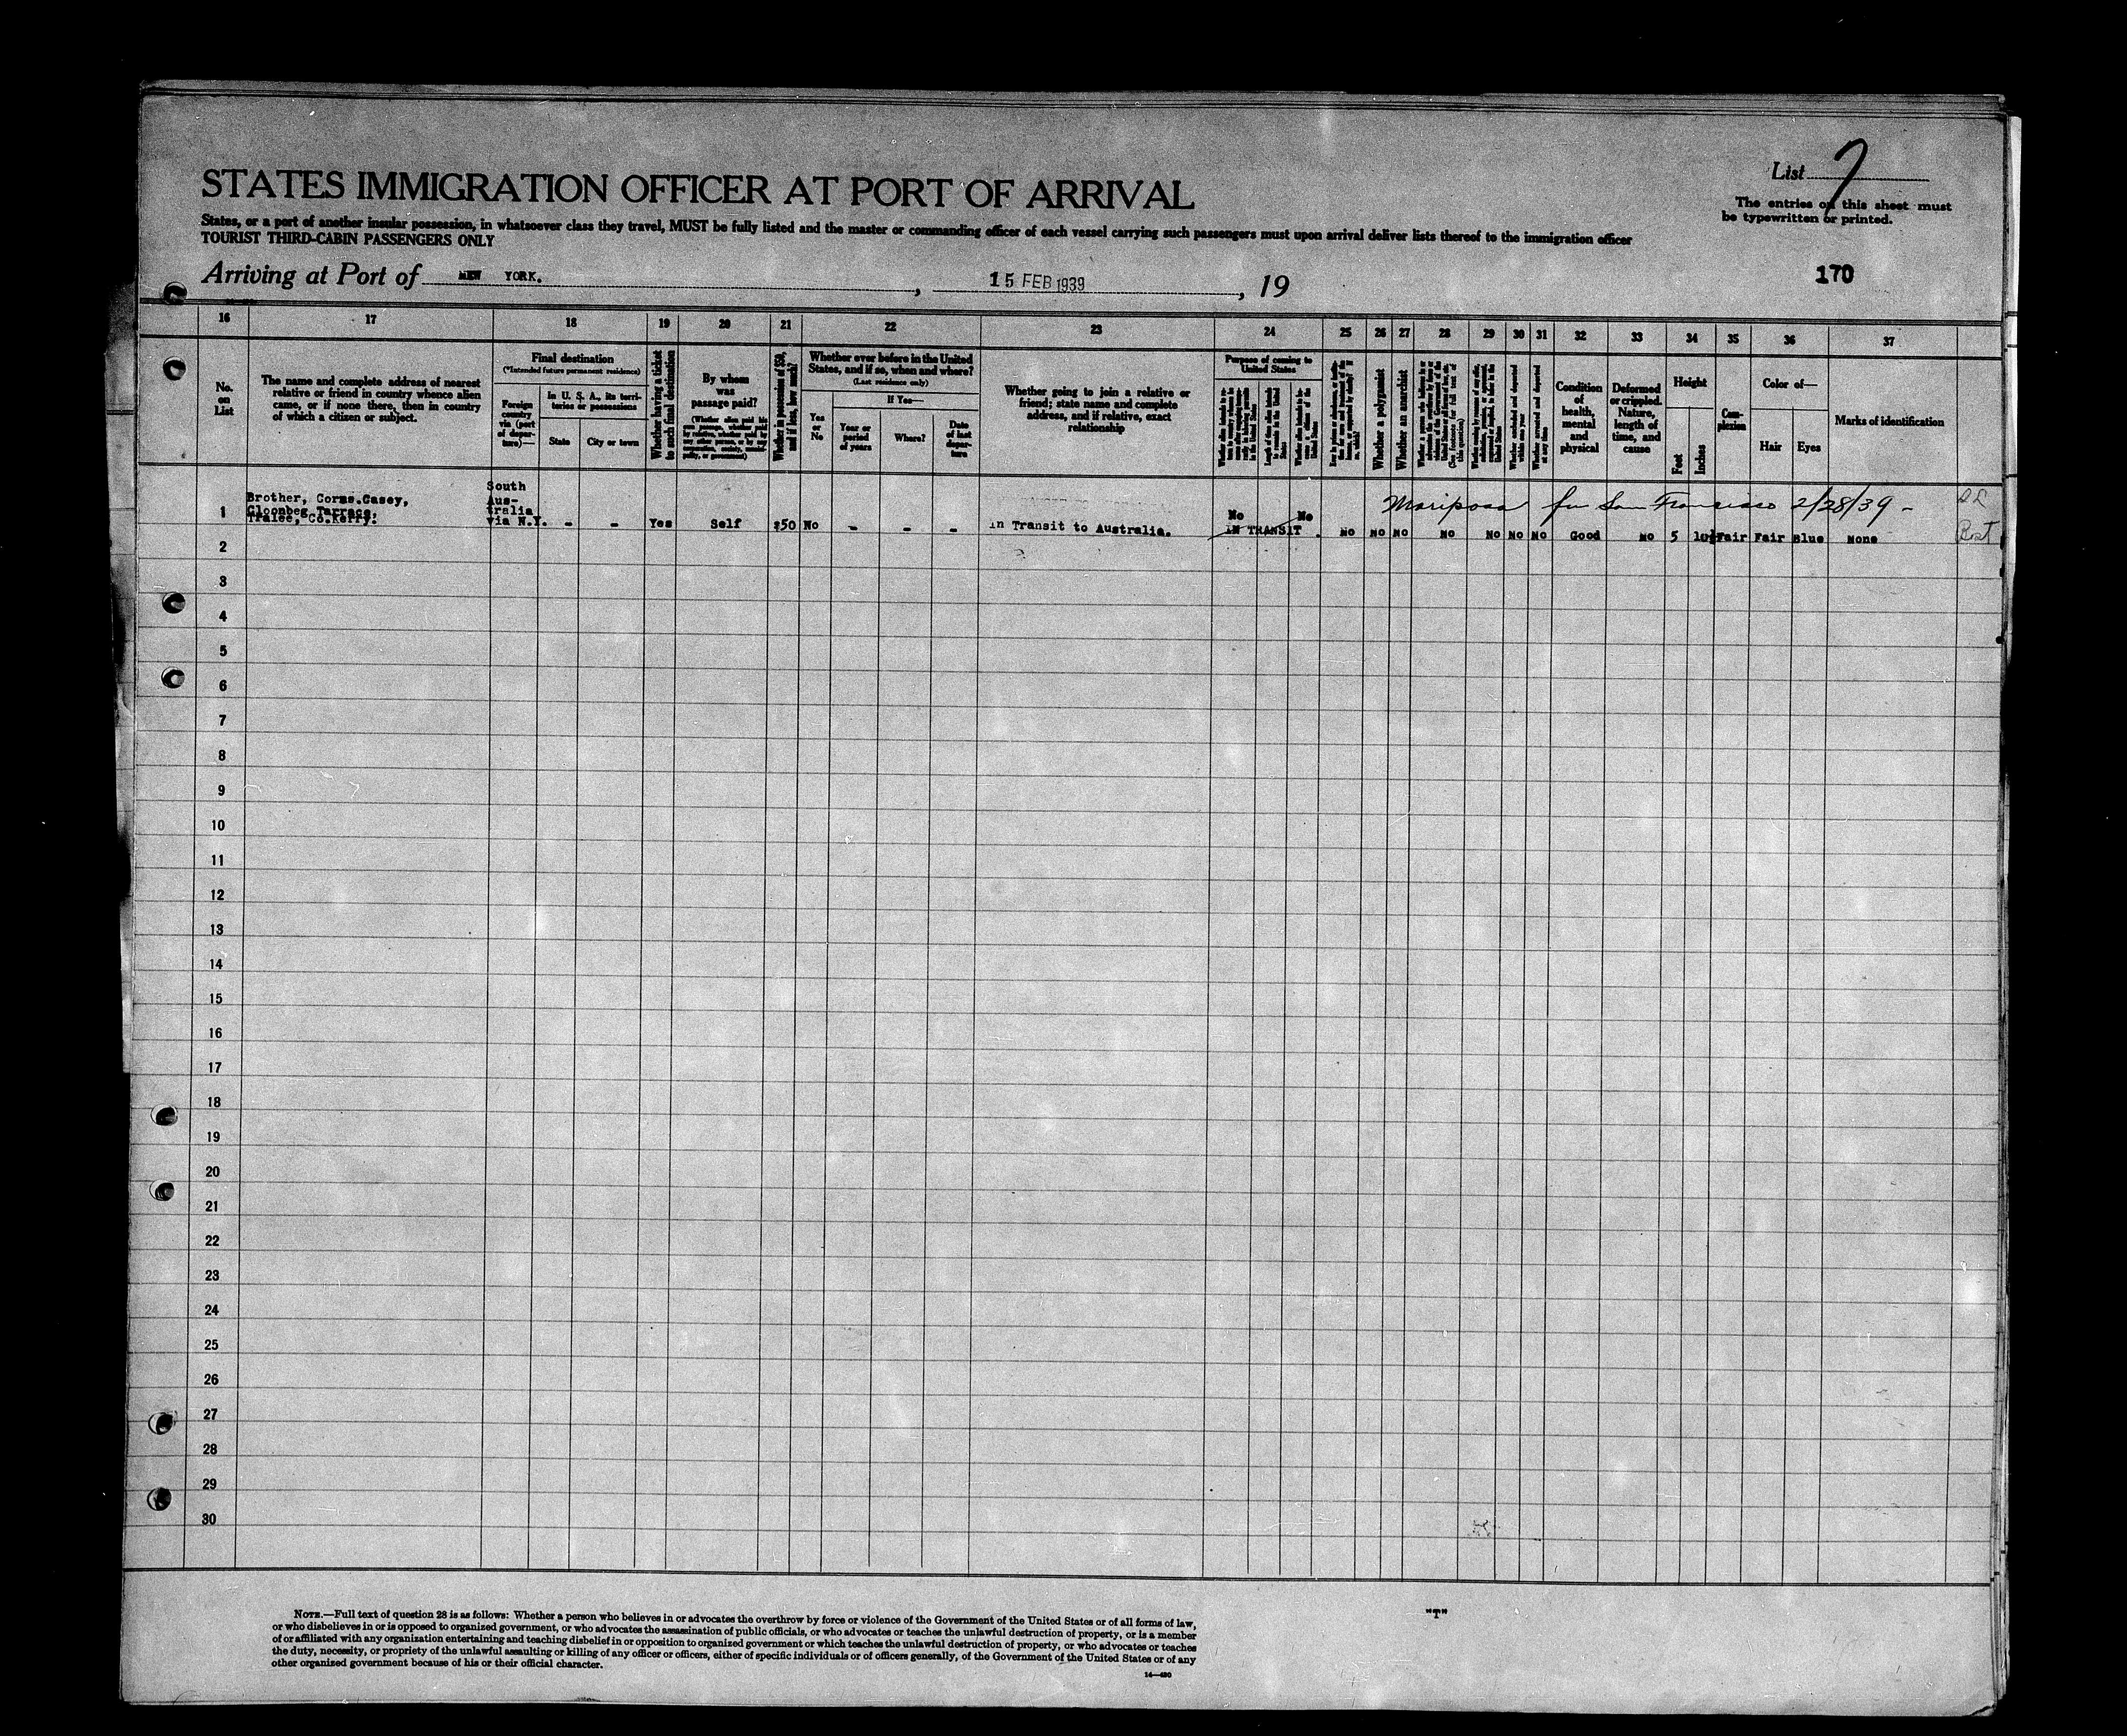 List 7
STATES IMMIGRATION OFFICER AT PORT OF ARRIVAL
The entries on this sheet must
be typewritten or printed.
States, or a port of another insular possession, in whatsoever class they travel, MUST be fully listed and the master or commanding officer of each vessel carrying such passengers must upon arrival deliver lists thereof to the immigration officer
TOURIST THIRD-CABIN PASSENGERS ONLY
Arriving at Port of NEW YORK. , 15 FEB 1939 , 19
170
16 17 18 19 20 21 22 23 24 25 26 27 28 29 30 31 32 33 34 35 36 37
No.
on
List
The name and complete address of nearest
relative or friend in country whence alien
came, or if none there, then in country
of which a citizen or subject.
Final destination
(*Intended future permanent residence)
Foreign
country
via (port
of depar-
ture)—
In U. S. A., its terri-
tories or possessions
State
City or town
Whether having a ticket
to such final destination
By whom
was
passage paid?
Whether in possession of $50,
and if less, how much?
Whether ever before in the United
States, and if so, when and where?
(Last residence only)
Yes
or
No
If Yes—
Year or
period
of years
Where?
Date
of last
depar-
ture
Whether going to join a relative or
friend; state name and complete
address, and if relative, exact
relationship
Purpose of coming to
United States
Whether a polygamist
Whether an anarchist
Condition
of
health,
mental
and
physical
Deformed
or crippled.
Nature,
length of
time, and
cause
Height
Feet
Inches
Com-
plexion
Color of—
Hair
Eyes
Marks of identification
1
Brother, Corms.Casey,
Cloonbeg Terrace,
Tralee, Co.Kerry.
South
Aus-
tralia
via N.Y. - - Yes Self $50 No - - - In Transit to Australia.
No No
IN TRANSIT .
Mariposa fm San Francisco 2/28/39 -
No No No No No No No Good No 5 10½ Fair Fair Blue None
2
3
4
5
6
7
8
9
10
11
12
13
14
15
16
17
18
19
20
21
22
23
24
25
26
27
28
29
30
NOTE.—Full text of question 28 is as follows: Whether a person who believes in or advocates the overthrow by force or violence of the Government of the United States or of all forms of law,
or who disbelieves in or is opposed to organized government, or who advocates the assassination of public officials, or who advocates or teaches the unlawful destruction of property, or is a member
of or affiliated with any organization entertaining and teaching disbelief in or opposition to organized government or which teaches the unlawful destruction of property, or who advocates or teaches
the duty, necessity, or propriety of the unlawful assaulting or killing of any officer or officers, either of specific individuals or of officers generally, of the Government of the United States or of any
other organized government because of his or their official character.
"T"
14—480